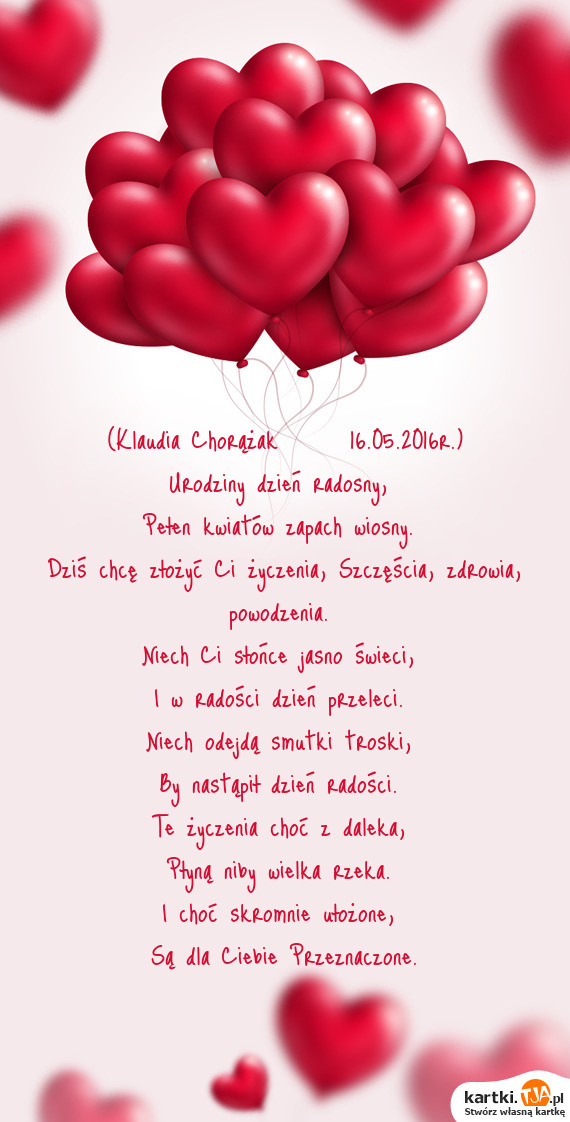 (Klaudia Chorążak 16.05.2016r.)
Urodziny dzień radosny,
Pełen kwiatów zapach wiosny.
Dziś chcę złożyć Ci życzenia, Szczęścia, zdrowia,
powodzenia.
Niech Ci słońce jasno świeci,
I w radości dzień przeleci.
Niech odejdą smutki troski,
By nastąpił dzień radości.
Te życzenia choć z daleka,
Płyną niby wielka rzeka.
I choć skromnie ułożone,
Są dla Ciebie Przeznaczone.
kartki.TJA.pl
Stwórz własną kartkę